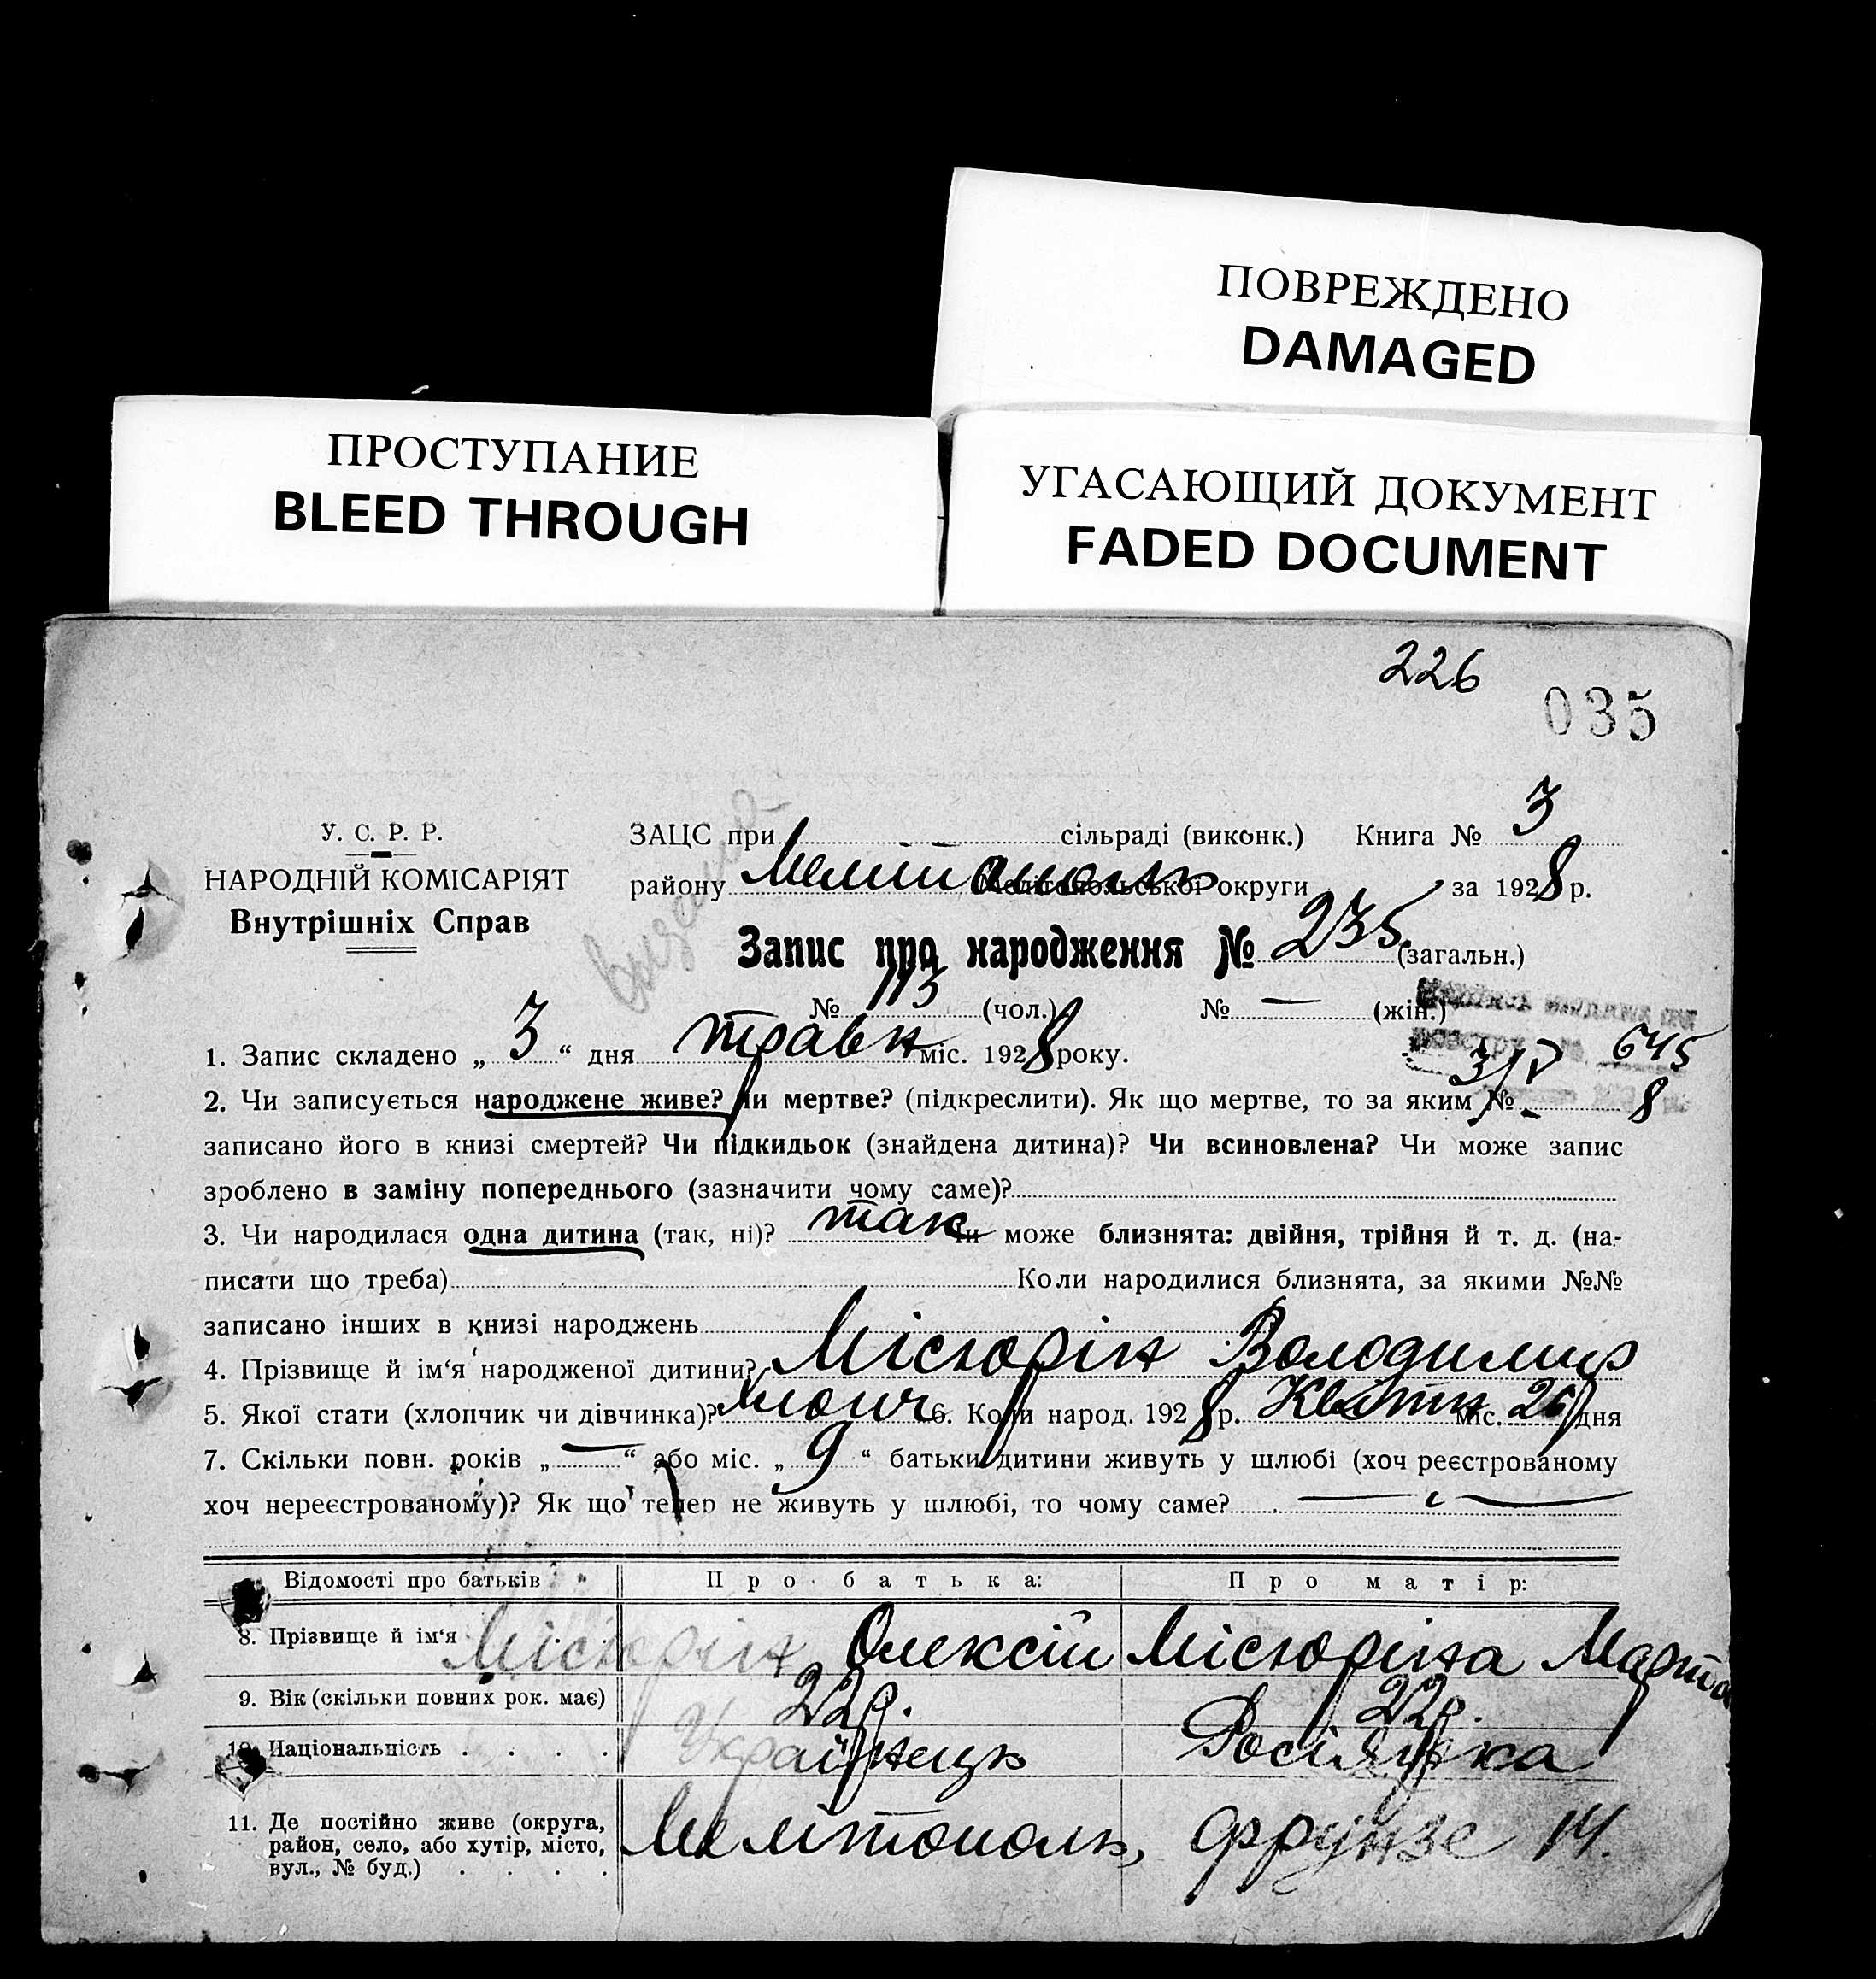 ПОВРЕЖДЕНО
DAMAGED
ПРОСТУПАНИЕ
BLEED THROUGH
УГАСАЮЩИЙ ДОКУМЕНТ
FADED DOCUMENT
226
035
У. С. Р. Р.
НАРОДНІЙ КОМІСАРІЯТ
Внутрішніх Справ
ЗАЦС при сільраді (виконк.) Книга № 3
району Мелітополь Мелітопольської округи за 1928 р.
Запис про народження № 235 (загальн.)
№ 113 (чол.) № — (жін.)
645
3/V
8
1. Запис складено „ 3 “ дня травн міс. 1928 року.
2. Чи записується народжене живе? Чи мертве? (підкреслити). Як що мертве, то за яким № -
записано його в книзі смертей? Чи підкидьок (знайдена дитина)? Чи всиновлена? Чи може запис
зроблено в заміну попереднього (зазначити чому саме)?
3. Чи народилася одна дитина (так, ні)? так Чи може близнята: двійня, трійня й т. д. (на-
писати що треба) Коли народилися близнята, за якими №№
записано інших в книзі народжень
4. Прізвище й ім‘я народженої дитини? Місюрін Володимир
5. Якої стати (хлопчик чи дівчинка)? хлопч 6. Коли народ. 1928 р. Квітн міс. 26 дня
7. Скільки повн. років „ — “ або міс. „ 9 “ батьки дитини живуть у шлюбі (хоч реєстрованому
хоч нереєстрованому)? Як що тепер не живуть у шлюбі, то чому саме?
Відомості про батьків Про батька: Про матір:
8. Прізвище й ім‘я Місюрін Олексій Місюріна Марта
9. Вік (скільки повних рок. має) 22р. 22р.
10. Національність . . . . Українець Росіянка
11. Де постійно живе (округа,
район, село, або хутір, місто,
вул., № буд.) . . . .
Мелітополь, Фрунзе 14.